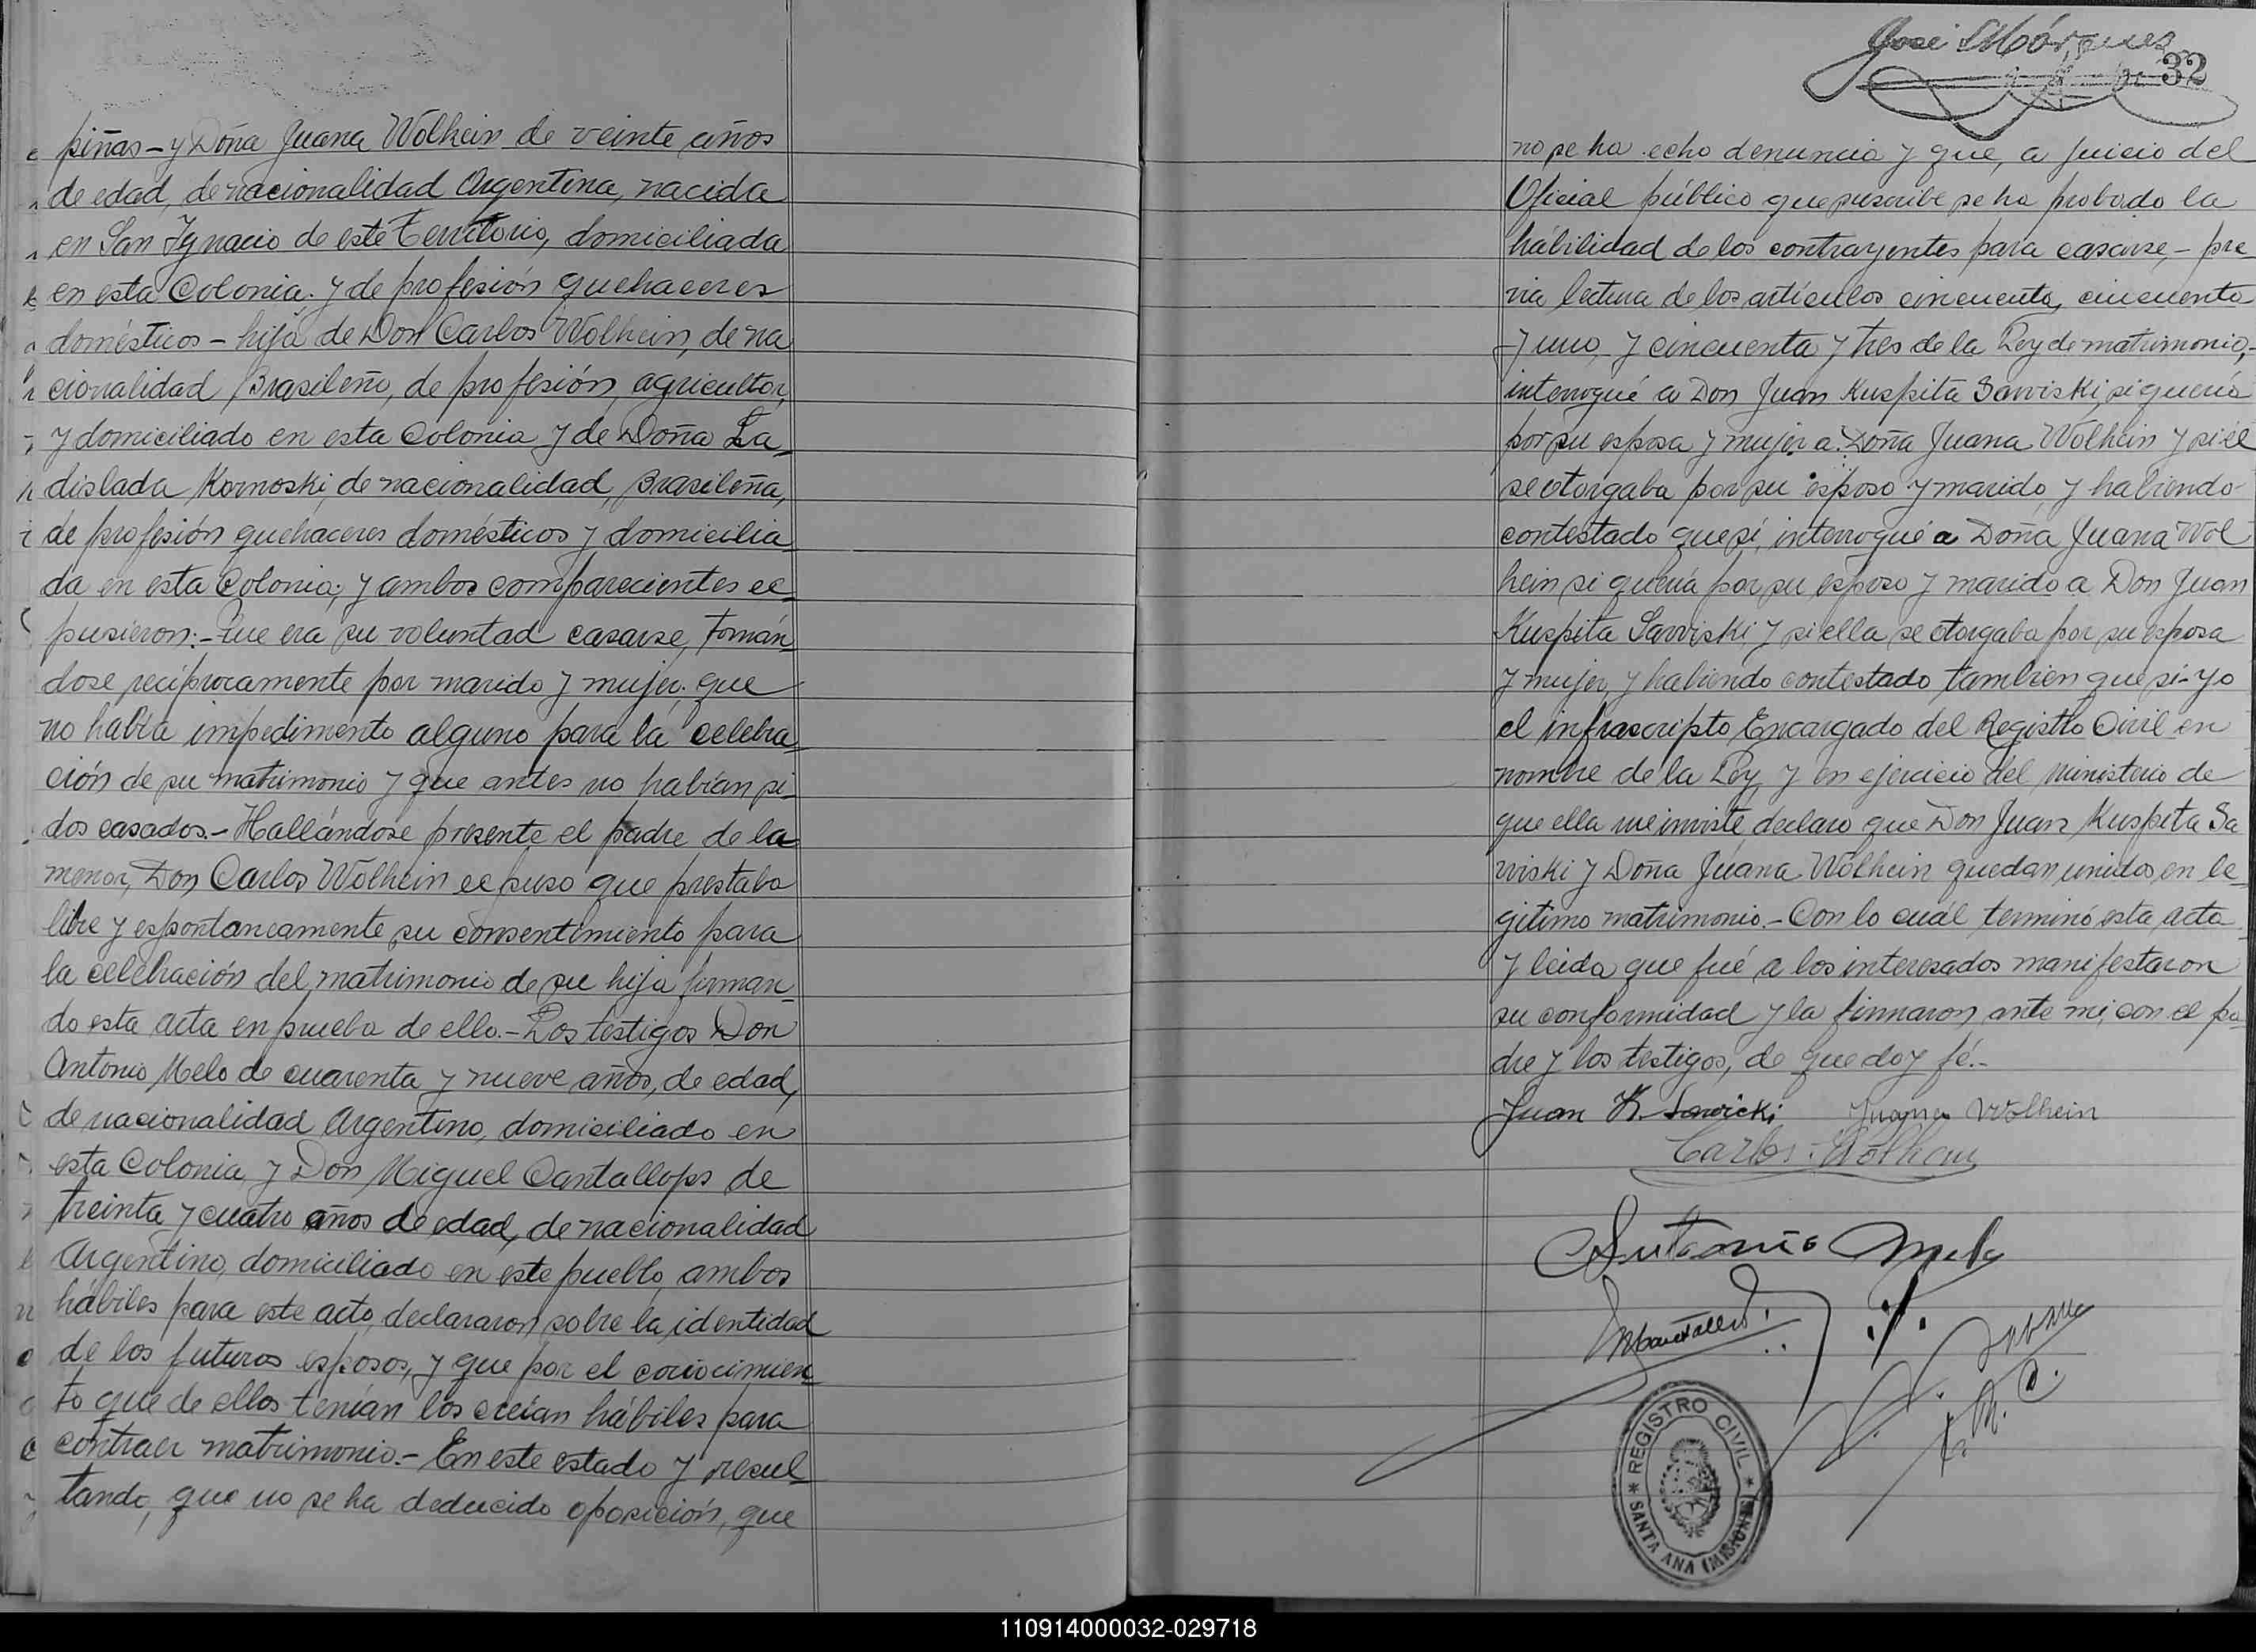 piñas - y Doña Juana Wolhein de veinte años
de edad, de nacionalidad Argentina, nacida
en San Ygnacio de este Territorio, domiciliada
en esta Colonia. y de profesión quehaceres
domésticos - hija de Don Carlos Wolhein, de na
cionalidad Brasileño, de profesión, agricultor,
y domiciliado en esta Colonia y de Doña La_
dislada Kornoski de nacionalidad, Brasileña,
de profesión quehaceres domésticos y domicilia_
da en esta Colonia; y ambos comparecientes ec_
pusieron:- Que era su voluntad casarse, tomán_
dose recíprocamente por marido y mujer; que
no había impedimento alguno para la celebra_
ción de su matrimonio y que antes no habían si_
dos casados.- Hallándose presente el padre de la
menor, Don Carlos Wolhein ecpuso que prestaba
libre y espontaneamente su consentimiento para
la celebración del matrimonio de su hija firman_
do esta acta en prueba de ello.- Los testigos Don
Antonio Melo de cuarenta y nueve años, de edad,
de nacionalidad Argentino, domiciliado en
esta Colonia y Don Miguel Cantallops de
treinta y cuatro años de edad, de nacionalidad
Argentino, domiciliado en este pueblo, ambos
hábiles para este acto, declararon sobre la identidad
de los futuros esposos, y que por el conocimien_
to que de ellos tenían los creían hábiles para
contraer matrimonio.- En este estado y resul_
tando, que no se ha deducido oposición, que
José Márquez
32
no se ha echo denuncia y que, a juicio del
Oficial público que suscribe se ha probado la
habilidad de los contrayentes para casarse, - pre
via lectura de los artículos cincuenta, cincuenta
y uno, y cincuenta y tres de la Ley de matrimonio,-
interrogué a Don Juan Kuspita Sawiski, si quería
por su esposa y mujer a Doña Juana Wolhein y si él
se otorgaba por su esposo y marido y habiendo
contestado que sí, interrogué a Doña Juana Wol
hein si quería por su esposo y marido a Don Juan
Kuspita Sawiski y si ella se otorgaba por su esposa
y mujer, y habiendo contestado, tambien que si - yo
el infrascripto Encargado del Registro Civil en
nombre de la Ley, y en ejercicio del ministerio de
que ella me inviste, declaro que Don Juan Kuspita Sa
wiski y Doña Juana Wolhein quedan unidos en le_
gitimo matrimonio.- Con lo cuál terminó esta acta
y leida que fué a los interesados manifestaron
su conformidad y la firmaron ante mi, con el pa_
dre y los testigos, de que doy fé.-
Juan K. Sawicki Juana Wolhein
Carlos Wolhein
Antonio Melo
MCantallops
REGISTRO CIVIL
* SANTA ANA (MISIONES) *
110914000032-029718